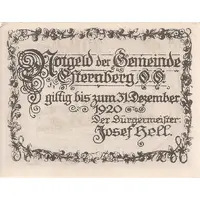 Notgeld der Gemeinde
Sternberg O.Ö.
giltig bis zum 31. Dezember
1920
Der Bürgermeister
Josef Hell.